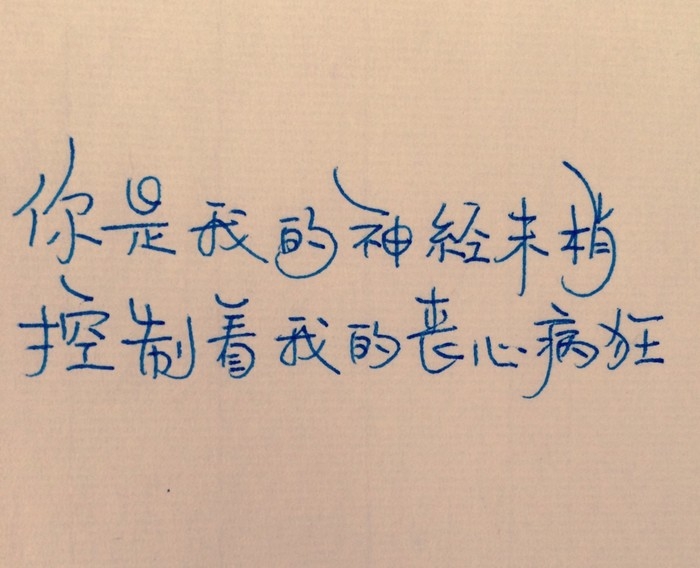 你是我的神经末梢
控制着我的丧心病狂